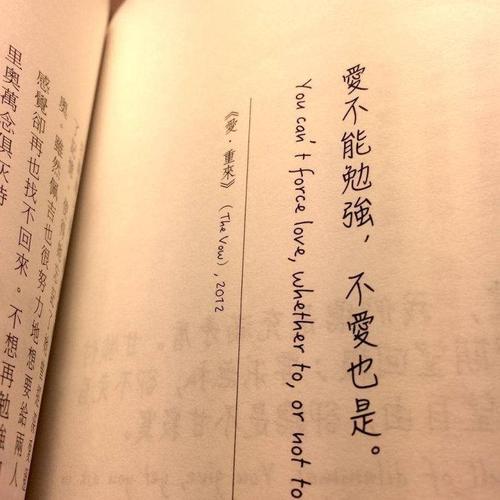 愛不能勉強，不愛也是。
You can't force love, whether to, or not to
《愛．重來》（The Vow）, 2012
奧。雖然佩吉也很努力地想要給兩人
感覺卻再也找不回來。不想再勉強
里奧萬念俱灰時